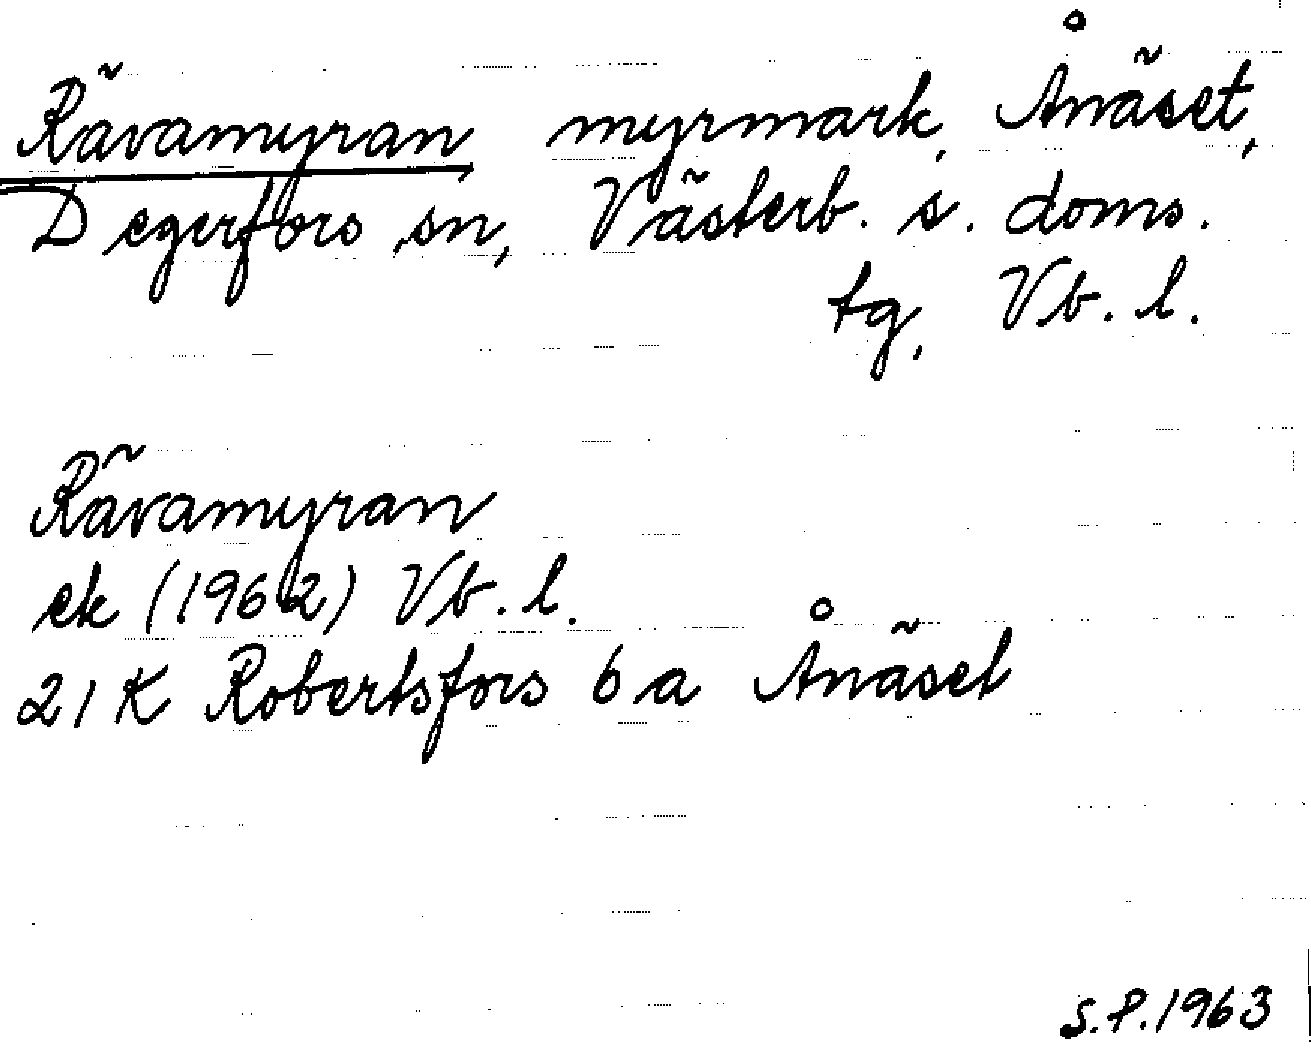 Rävamyran, myrmark, Ånäset,
Degerfors sn, Västerb. s. doms.
tg, Vb. l.
Rävamyran
ek (1962) Vb. l.
21 K Robertsfors 6 a Ånäset
S.P. 1963